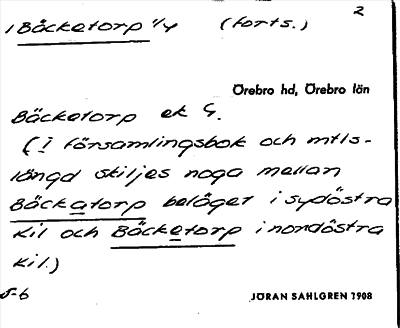 1 Bäcketorp 1/4 (forts.) 2
Örebro hd, Örebro län
Bäcketorp ek G.
(I församlingsbok och mtls-
längd skiljes noga mellan
Bäckatorp beläget i sydöstra
Kil och Bäcketorp i nordöstra
Kil.)
5-6
JÖRAN SAHLGREN 1908